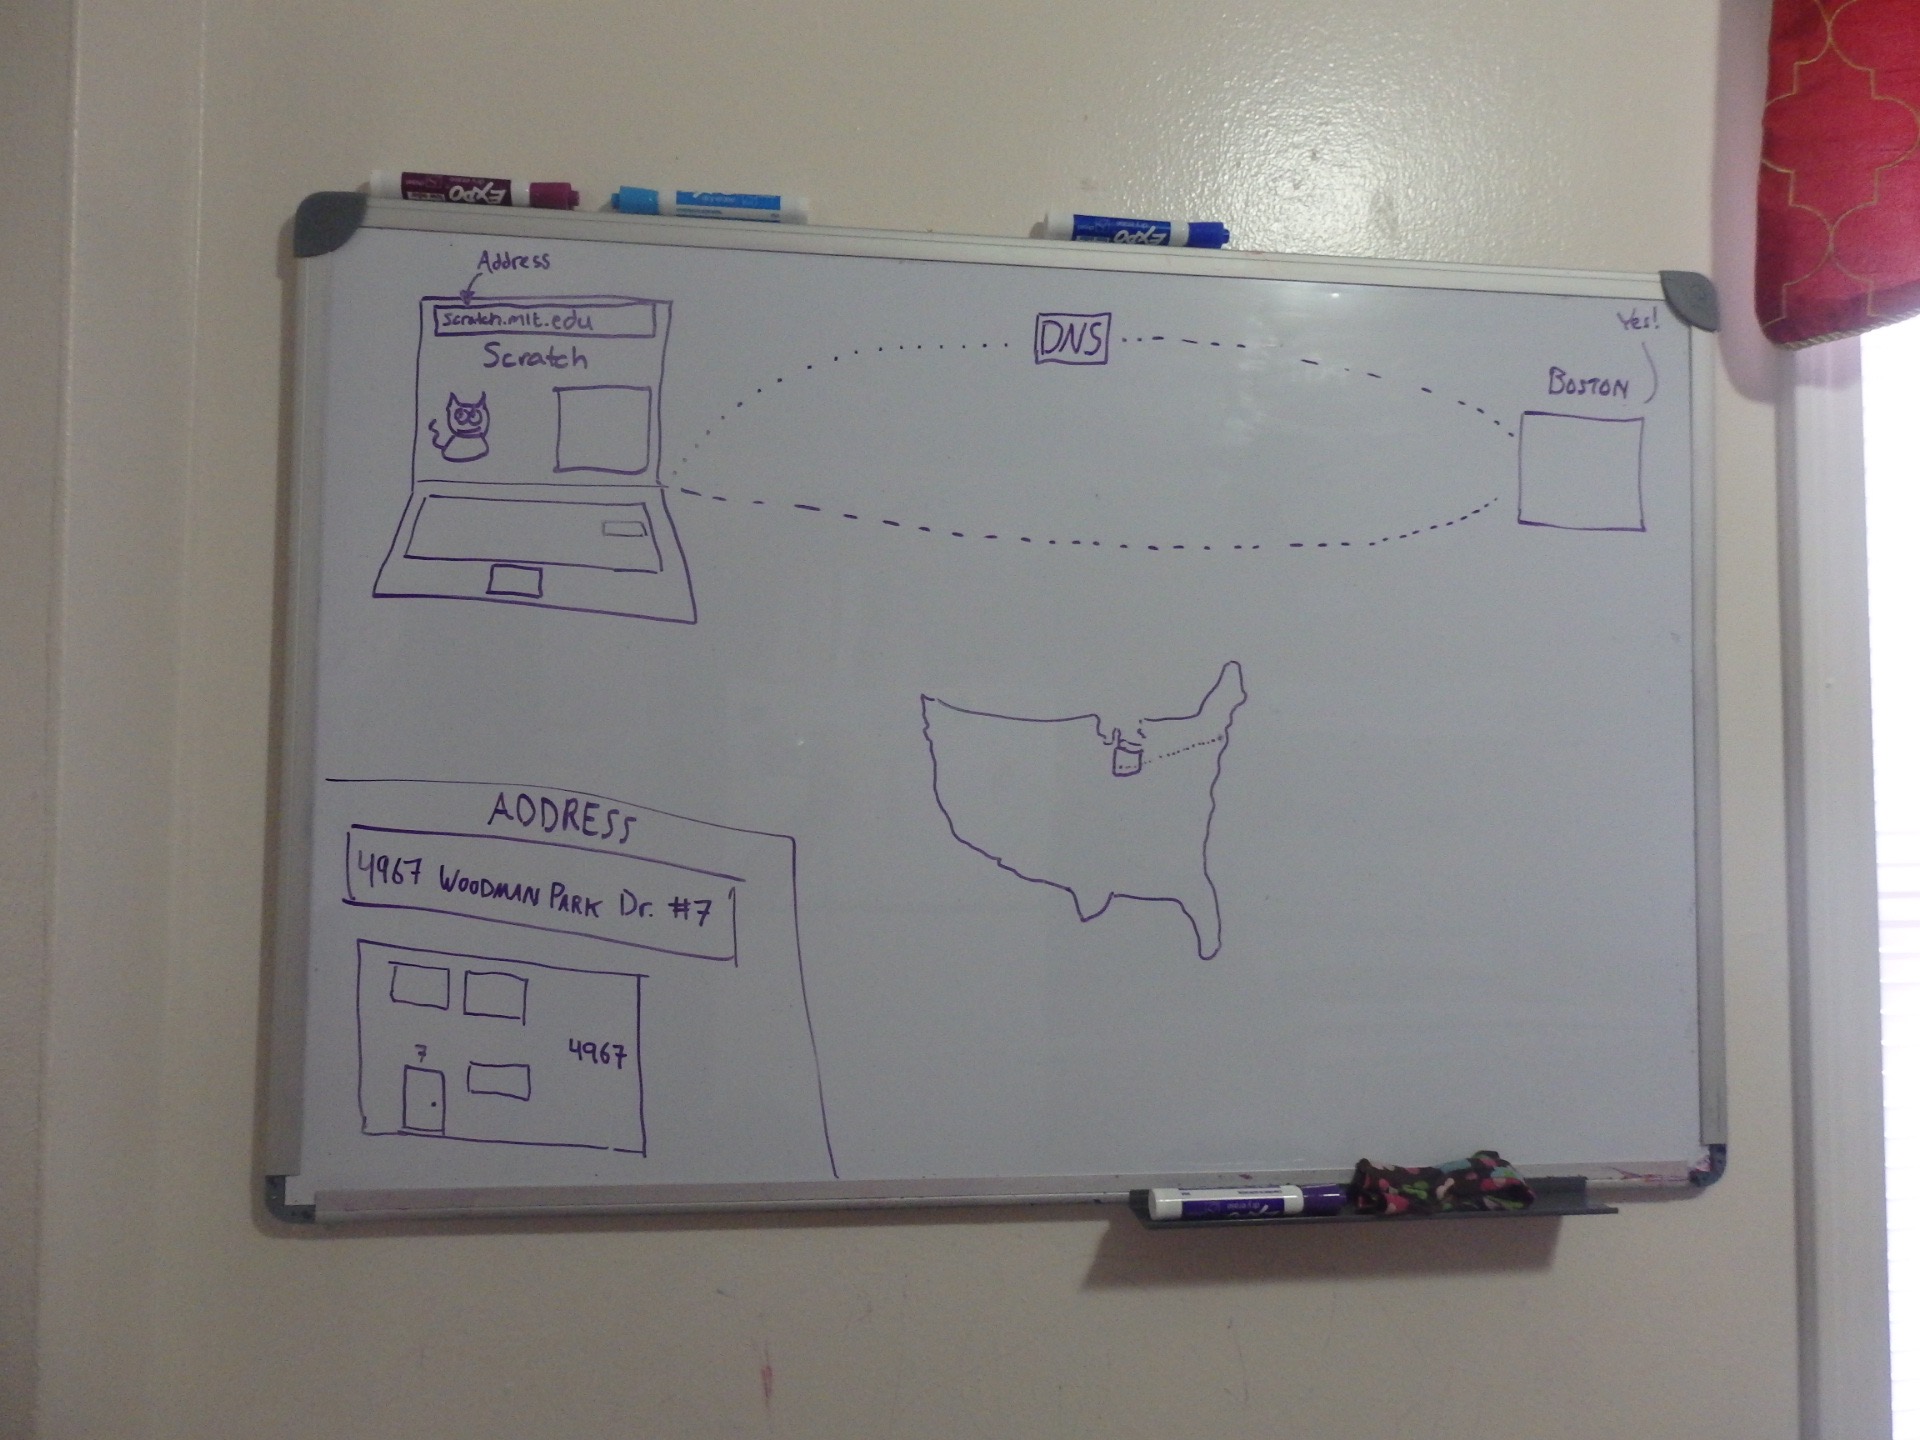 EXPO
EXPO
Address
scratch.mit.edu
Scratch
DNS
Yes!
BOSTON
ADDRESS
4967 WOODMAN PARK Dr. #7
7
4967